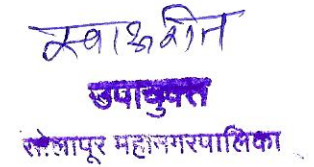 स्वाक्षरीत
उपायुक्त
सोलापूर महानगरपालिका